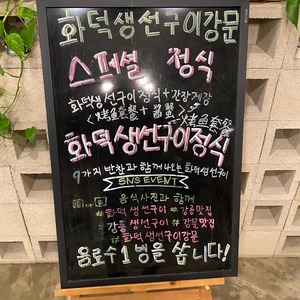 화덕생선구이강문
스퍼셜 정식
화덕생선구이정식+간장게장
<烤鱼套餐 + 酱蟹>
烤鱼套餐
화덕생선구이정식
9가지 반찬과 함께 나오는 화덕생선구이
SNS EVENT
음식사진과 함께
#화덕 생선구이 #강릉맛집
#강릉 생선구이 #강문맛집
#화덕 생선구이강문
음료수1병을 쏩니다!